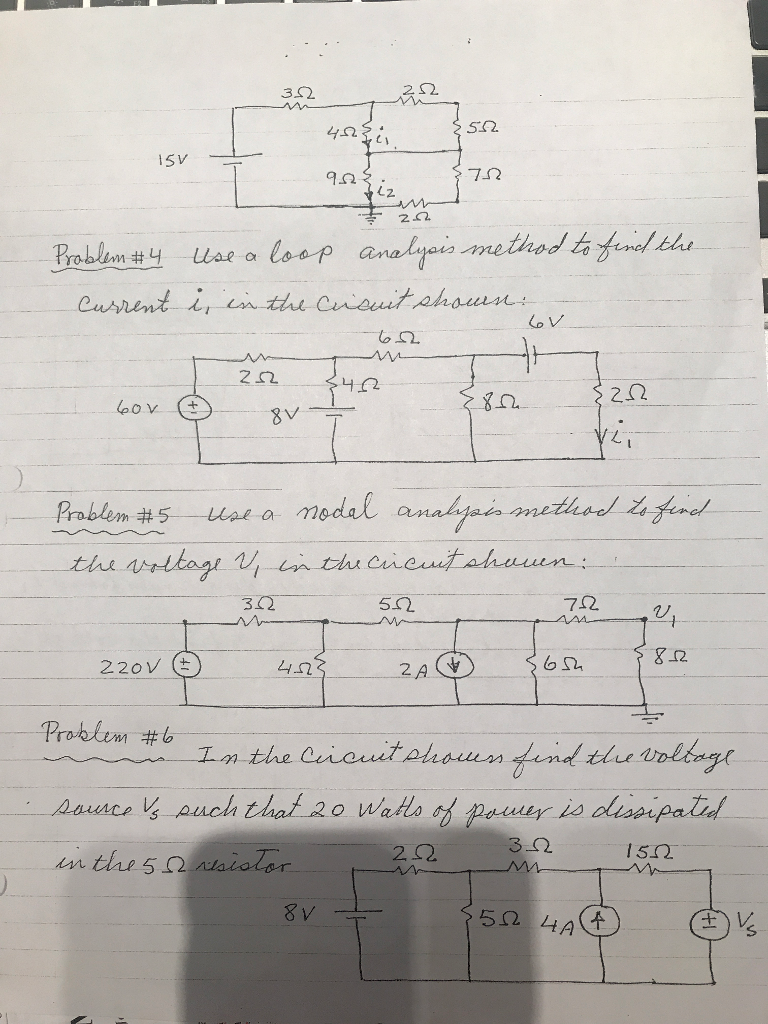 3Ω 2Ω
4Ω i₁ 5Ω
15V
9Ω i₂ 7Ω
2Ω
Problem #4 Use a loop analysis method to find the
current i₁ in the circuit shown:
6Ω 6V
2Ω 4Ω
60V 8V 8Ω 2Ω
i₁
Problem #5 Use a nodal analysis method to find
the voltage V₁ in the circuit shown:
3Ω 5Ω 7Ω V₁
220V 4Ω 2A 6Ω 8Ω
Problem #6
In the circuit shown find the voltage
source Vs such that 20 Watts of power is dissipated
in the 5Ω resistor
2Ω 3Ω 15Ω
8V 5Ω 4A Vs